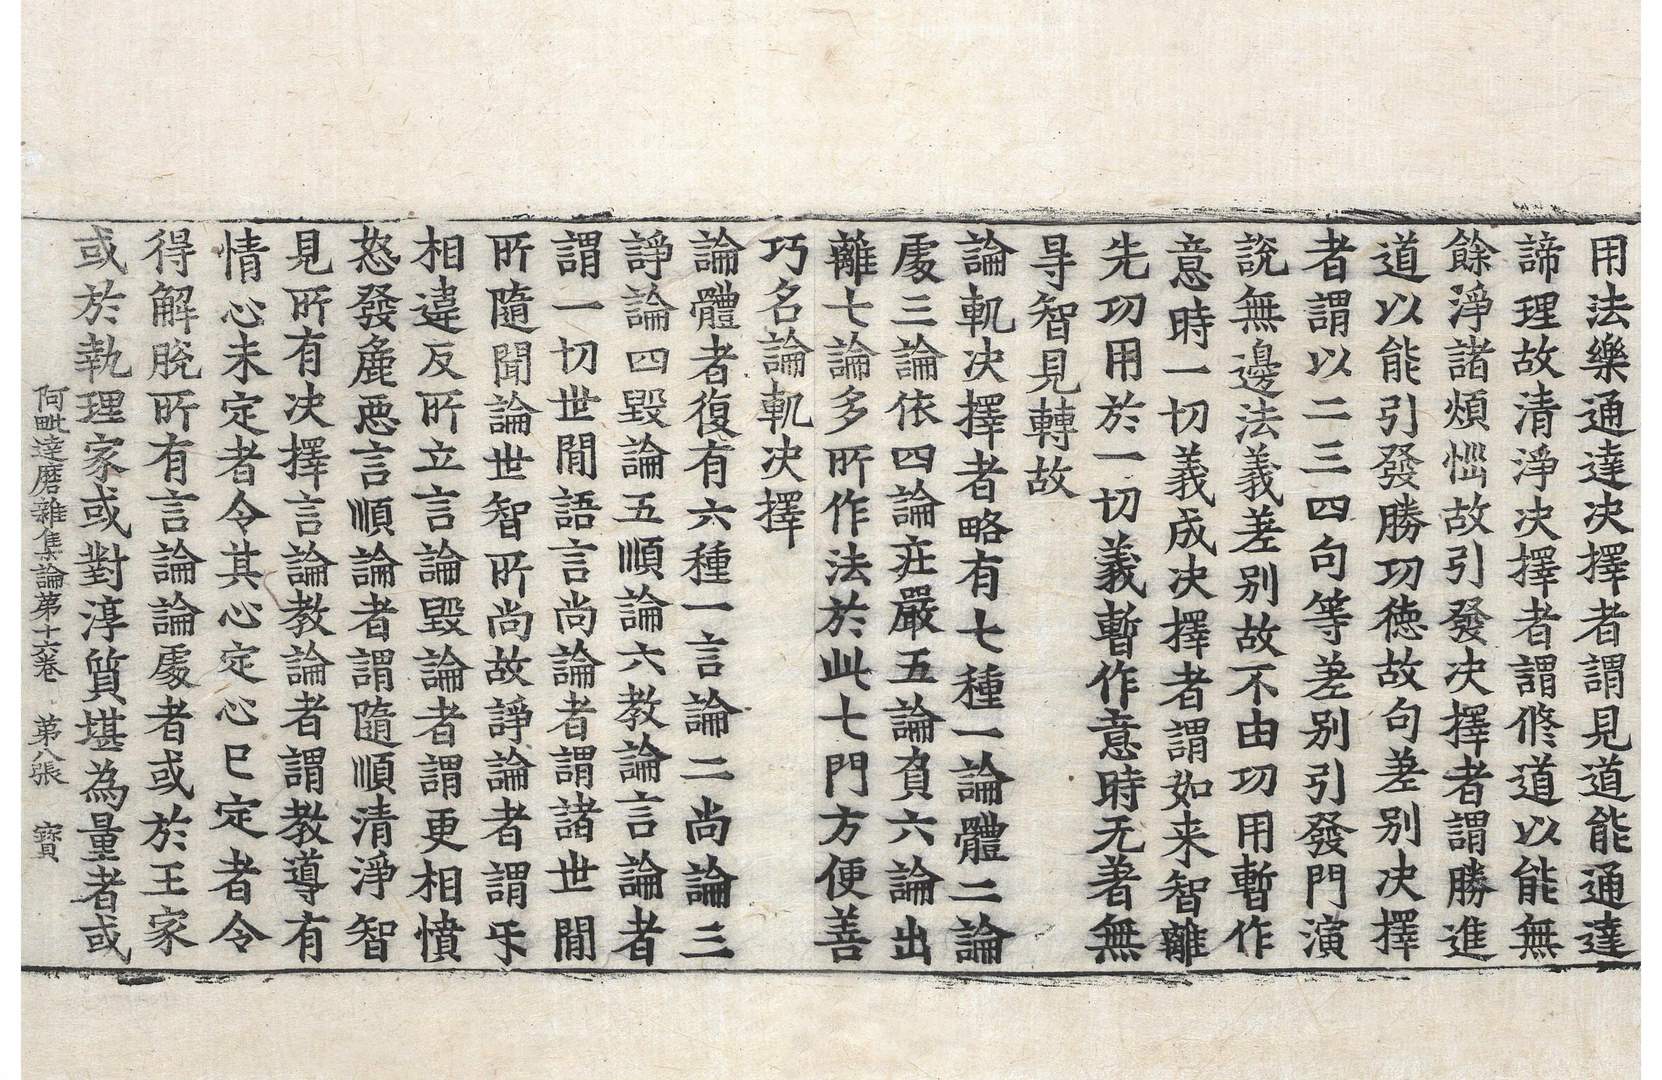 用法樂通達決擇者謂見道能通達
諦理故清淨决擇者謂修道以能無
餘淨諸煩惱故引發决擇者謂勝進
道以能引發勝功徳故句差别决擇
者謂以二三四句等差别引發門演
說無邊法義差别故不由功用暫作
意時一切義成决擇者謂如来智離
先功用於一切義暫作意時无著無
㝵智見轉故
論軌决擇者略有七種一論體二論
處三論依四論庄嚴五論負六論出
離七論多所作法於此七門方便善
巧名論軌决擇
論體者復有六種一言論二尚論三
諍論四毀論五順論六教論言論者
謂一切世閒語言尚論者謂諸世閒
所隨聞論世智所尚故諍論者謂㸦
相違反所立言論毀論者謂更相憤
怒發麁惡言順論者謂隨順清淨智
見所有决擇言論教論者謂教導有
情心未定者令其心定心已定者令
得解脫所有言論論處者或於王家
或於執理家或對淳質堪為量者或
阿毗達磨雜集論第十六卷 第八張 寳